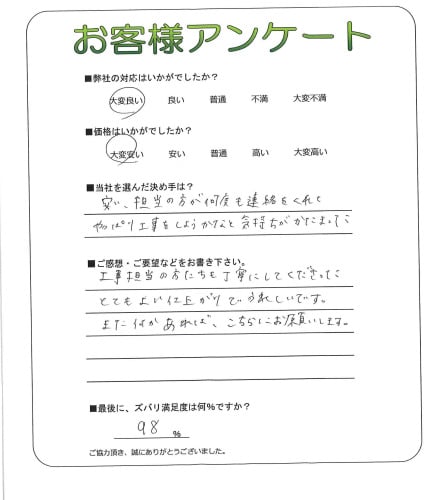 お客様アンケート
■弊社の対応はいかがでしたか?
大変良い 良い 普通 不満 大変不満
■価格はいかがでしたか?
大変安い 安い 普通 高い 大変高い
■当社を選んだ決め手は?
安い、担当の方が何度も連絡をくれて
やっぱり工事をしようかなと気持ちがかたまった
■ご感想・ご要望などをお書き下さい。
工事担当の方たちも丁寧にしてくださった
とてもよい仕上がりでうれしいです。
また何かあれば、こちらにお願いします。
■最後に、ズバリ満足度は何%ですか?
98 %
ご協力頂き、誠にありがとうございました。